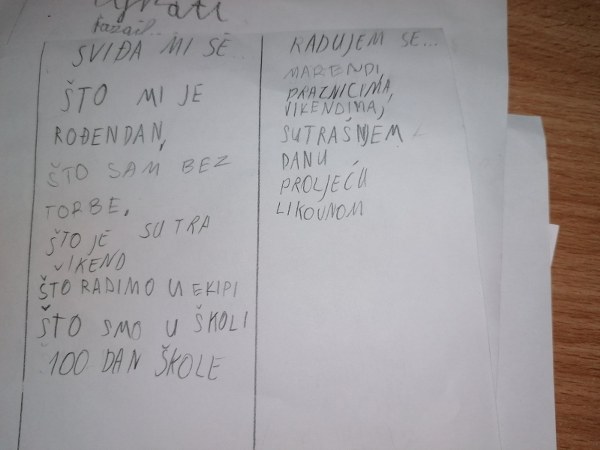 SVIĐA MI SE...
ŠTO MI JE
ROĐENDAN,
ŠTO SAM BEZ
TORBE,
ŠTO JE SUTRA
VIKEND
ŠTO RADIMO U EKIPI
ŠTO SMO U ŠKOLI
100 DAN ŠKOLE
RADUJEM SE...
MARENDI,
PRAZNICIMA,
VIKENDIMA,
SUTRAŠNJEM
DANU
PROLJEĆU
LIKOVNOM